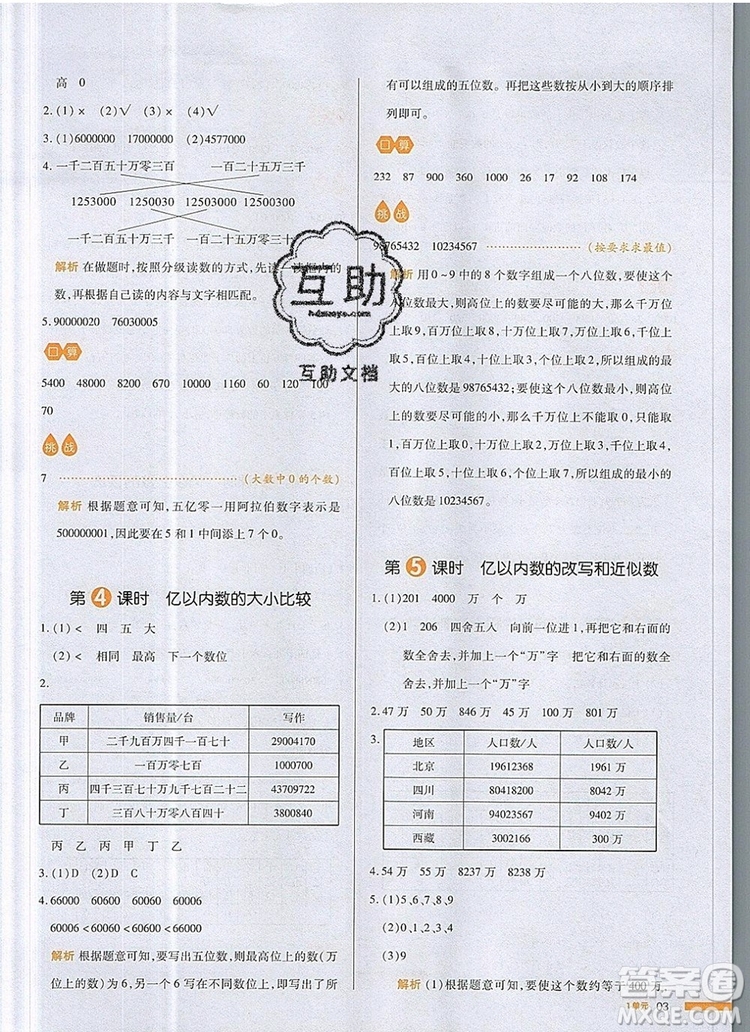 高　0
2.(1)×　(2)√　(3)×　(4)√
3.(1)6000000　17000000　(2)4577000
4.一千二百五十万零三百　一百二十五万三千
1253000　1250030　12503000　12500300
一千二百五十万三千　一百二十五万零三十
解析 在做题时,按照分级读数的方式,先读
数,再根据自己读的内容与文字相匹配。
5.90000020　76030005
口算
5400　48000　8200　670　10000　60　120　100
70
挑战
7　(大数中0的个数)
解析 根据题意可知,五亿零一用阿拉伯数字表示是
500000001,因此要在5和1中间添上7个0。
第4课时　亿以内数的大小比较
1.(1)<　四　五　大
(2)<　相同　最高　下一个数位
2.
品牌　销售量/台　写作
甲　二千九百万四千一百七十　29004170
乙　一百万零七百　1000700
丙　四千三百七十万九千七百二十二　43709722
丁　三百八十万零八百四十　3800840
丙　乙　丙　甲　丁　乙
3.(1)D　(2)D　C
4.66000　60600　60060　60006
60006<60060<60600<66000
解析 根据题意可知,要写出五位数,最高位上的数(万
位上的数)为6,另一个6写在不同数位上,即可写出所
有可以组成的五位数。再把这些数从小到大的顺序排
列即可。
口算
232　87　900　1000　26　17　92　108　174
挑战
98765432　10234567　(按要求求最值)
解析 用0~9中的8个数字组成一个八位数,要使这个
八位数最大,那么高位上的数要尽可能的大,那么千万位
上取9,百万位上取8,十万位上取7,万位上取6,千位上
取5,百位上取4,十位上取3,个位上取2,所以组成的最
大的八位数是98765432;要使这个八位数最小,那么高位
上的数要尽可能的小,但最高位上不能取0,那么千万位
上取1,百万位上取0,十万位上取2,万位上取3,千位上
取4,百位上取5,十位上取6,个位上取7,所以组成的最小的
八位数是10234567。
第5课时　亿以内数的改写和近似数
1.(1)201　4000　万　个　万
(2)1　206　四舍五入　向前一位进1,再把它和右面的
数全舍去,并写上一个“万”字　把它和右面的数全部
舍去,并写上一个“万”字
2.47万　50万　846万　300万　100万　801万
3.
地区　人口数/人　人口数/人
北京　19612368　1961万
四川　80418200　8042万
河南　94023567　9402万
西藏　3002166　300万
4.54万　55万　8237万　8238万
5.(1)5、6、7、8、9
(2)0、1、2、3、4
(3)9
解析 (1)根据题意可知,要使这个数约等于400万,
1单元　03
互助
hdzuoye.com
互助文档
答案圈
MXQE.COM